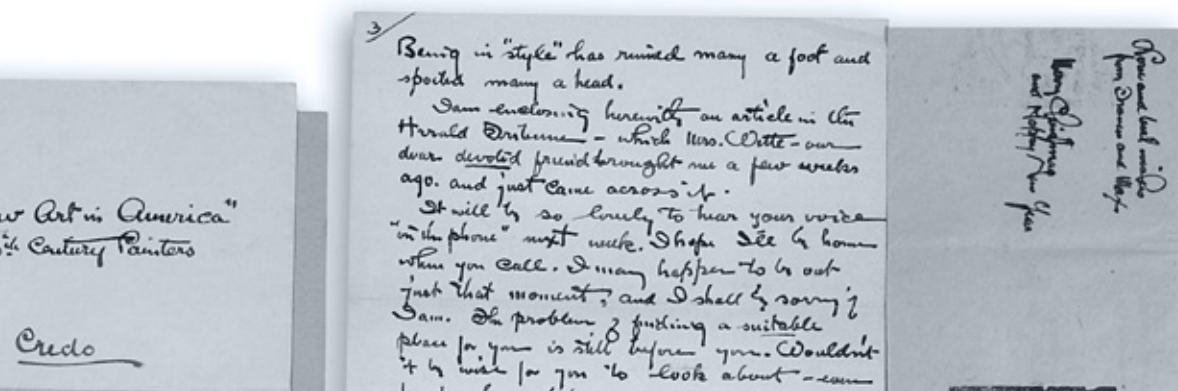 w Art in America"
th Century Painters
Credo
3/
Being in "style" has ruined many a foot and
spoiled many a head.
I am enclosing herewith an article in the
Herald Tribune - which Mrs. Witte - our
dear devoted friend brought me a few weeks
ago. and just came across it.
It will be so lovely to hear your voice
"on the phone" next week. I hope I'll be home
when you call. I may happen to be out
just that moment, and I shall be sorry if
I am. The problem of finding a suitable
place for you is still before you. Wouldn't
it be wise for you to look about - even
Love and best wishes
from and
Merry Christmas
and Happy New Year